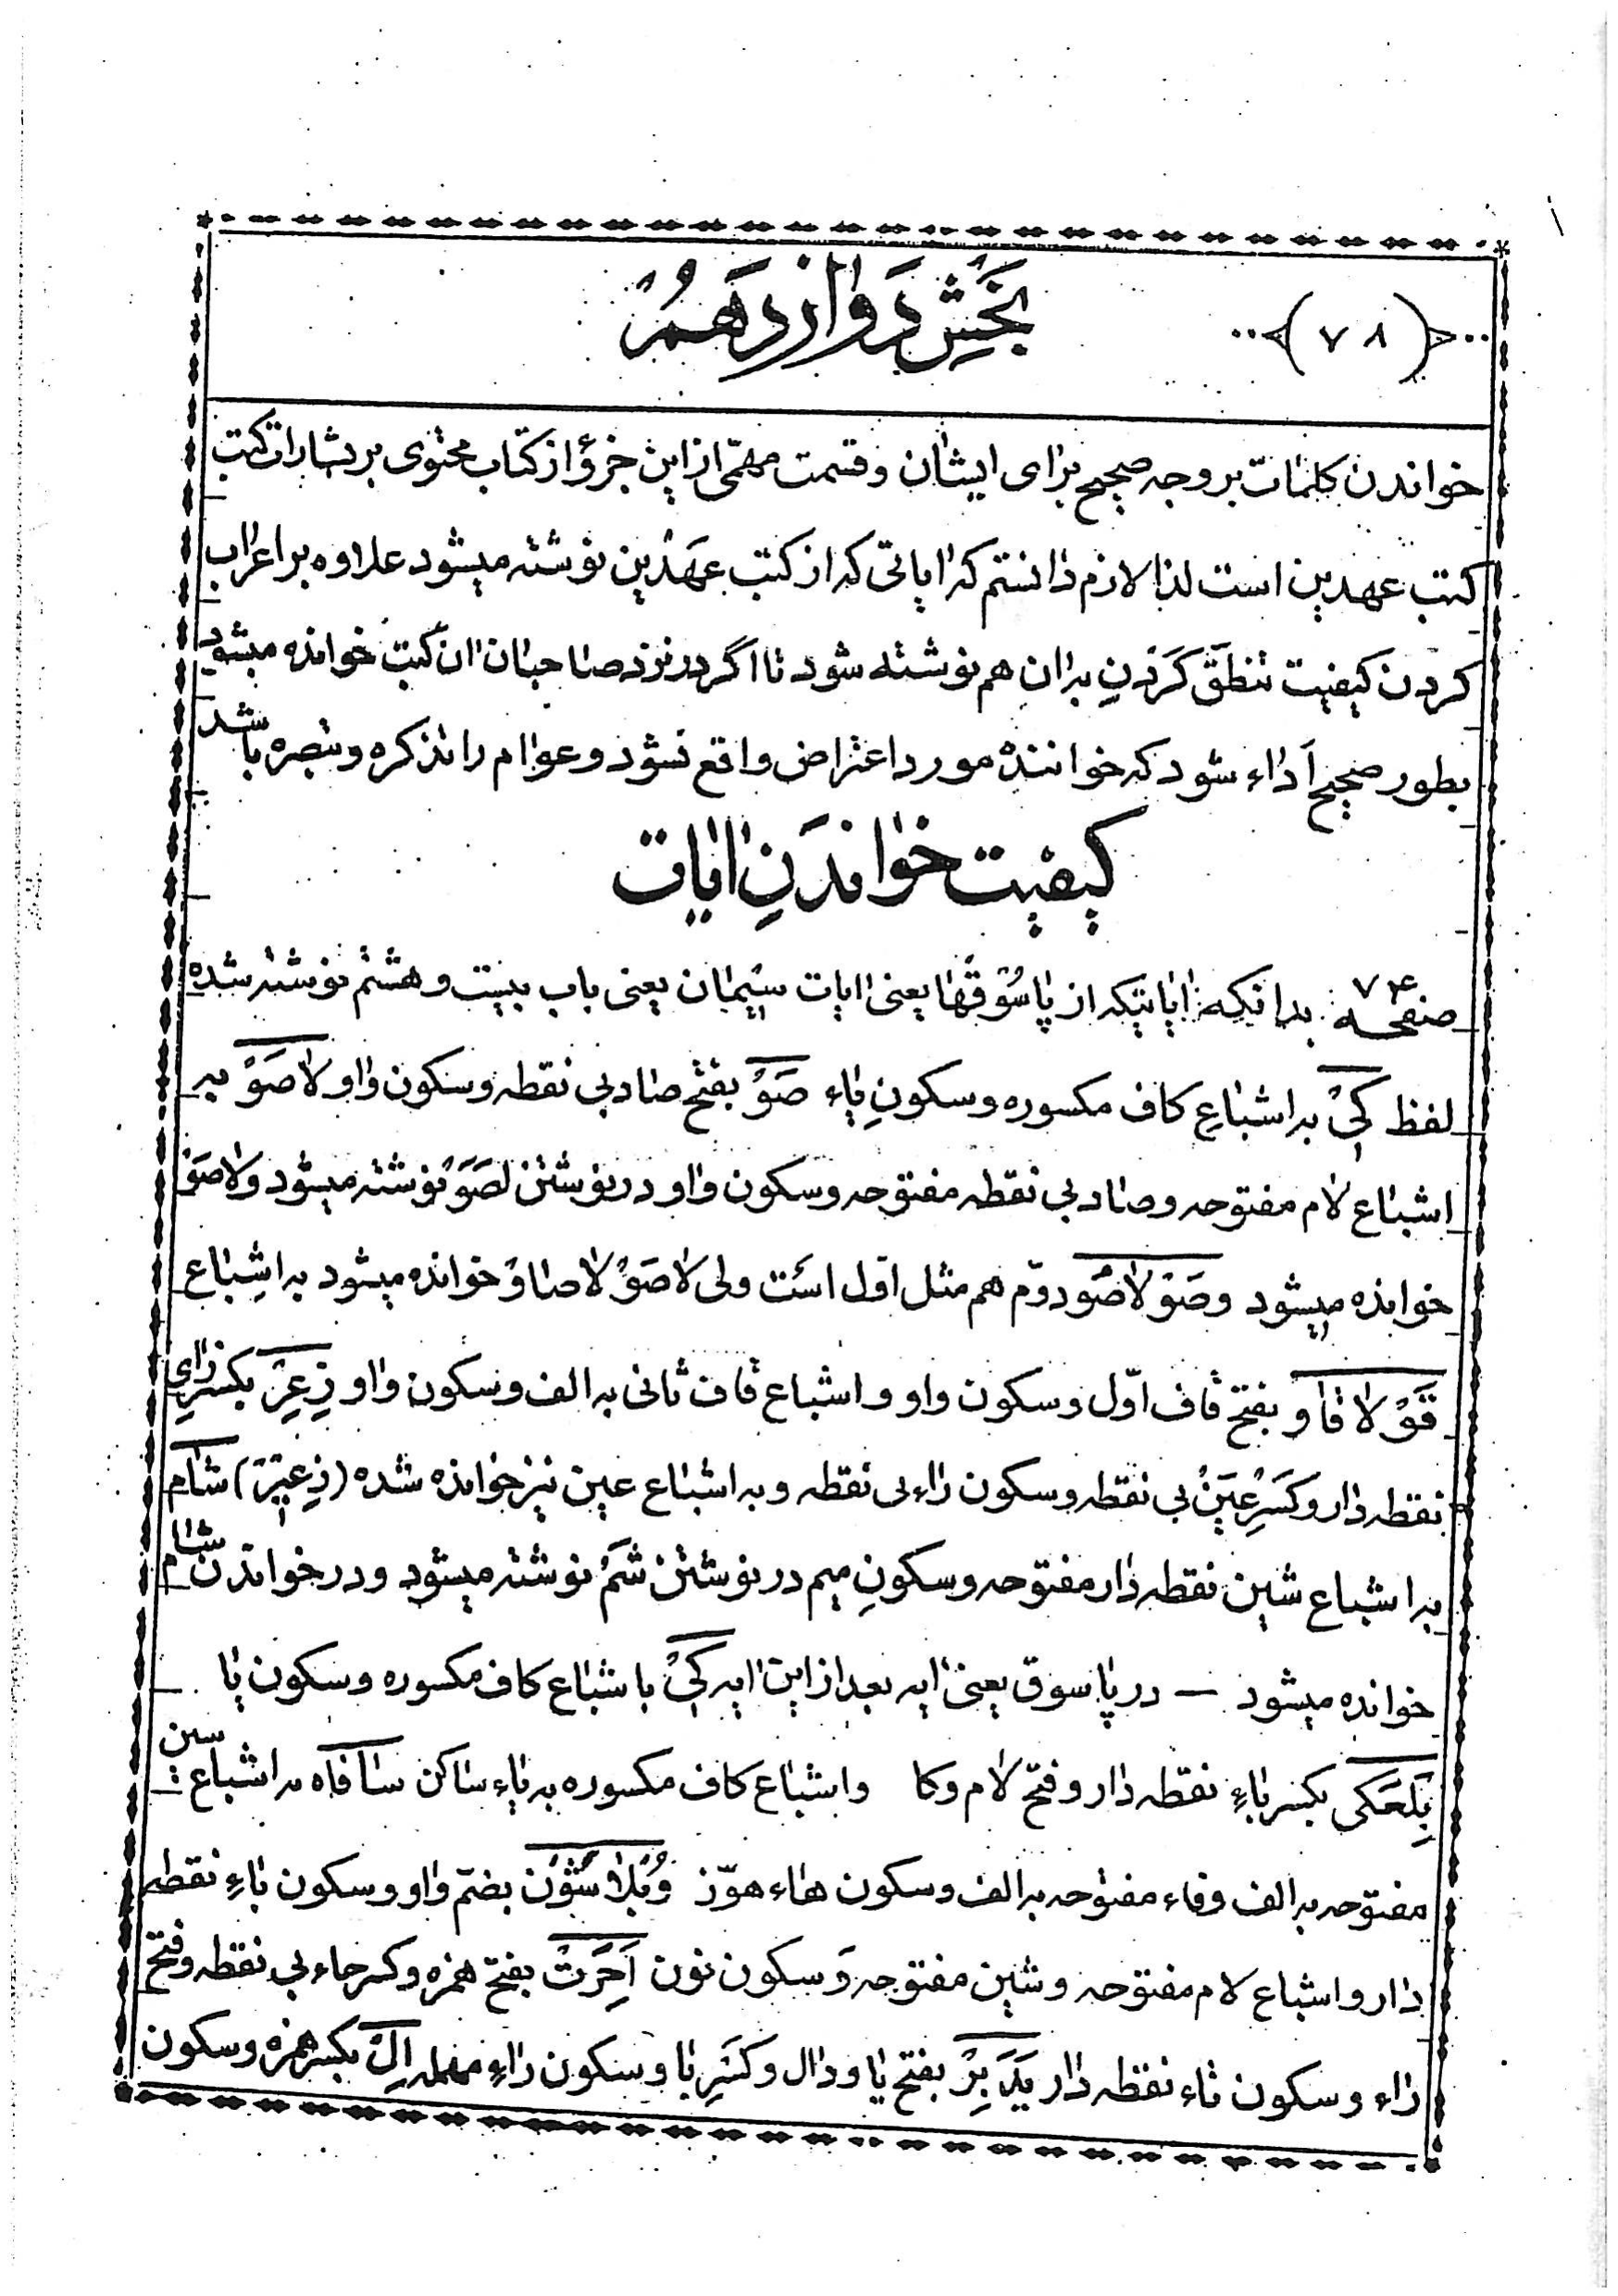 ﴿۷۸﴾
بَخْشِ دَوازدَهُمْ
خواندن کلمات بر وجه صحیح برای ایشان و قسمت مهمّی از این جزؤ از کتاب محتوی بر بشارات کتب
کتب عهدین است لذا لازم دانستم که ایاتی که از کتب عهدین نوشته میشود علاوه بر اعراب
کردن کیفیت تنطق کردنِ بدان هم نوشته شود تا اگر در نزد صاحبان ان کتب خوانده میشود
بطور صحیح اَداء شود که خواننده مورد اعتراض واقع نشود و عوام را تذکره و تبصره باشد
کیفیت خواندَنِ ایات
صفحه ۷۴ بدانکه ایاتیکه از پاسُوقها یعنی ایات سیمان یعنی باب بیست و هشتم نوشته شده
لفظ کیْ به اشباعِ کاف مکسوره و سکونِ یاء صَوْ بفتح صاد بی نقطه و سکون واو لاصَوْ به
اشباع لام مفتوحه و صاد بی نقطه مفتوحه و سکون واو در نوشتن لصَوَ نوشته میشود و لاصَوْ
خوانده میشود و صَوْ لاصَو دوّم هم مثل اوّل است ولی لاصَوْ لاصاوْ خوانده میشود به اشِباع
قَوْ لاقاو بفتح قاف اوّل و سکون واو و اشباع قاف ثانی به الف و سکون واو زِعِرْ بکسرِ زای
نقطه دار و کسرِ عین بی نقطه و سکون راء بی نقطه و به اشباع عین نیز خوانده شده (زِعیرْ) شام
به اشباع شین نقطه دار مفتوحه و سکونِ میم در نوشتن شَمْ نوشته میشود و در خواندن شام
خوانده میشود — در پاسوق یعنی ایه بعد از این ایه کیْ باشباع کاف مکسوره و سکون یا
بِلَعَکی بکسر باءِ نقطه دار و فتح لام و کا و اشباع کاف مکسوره به یاء ساکن سافاه به اشباع سین
مفتوحه به الف و فاء مفتوحه به الف و سکون هاء هوّز وُبْلاشَوْن بضمّ واو و سکون باءِ نقطه
دار و اشباع لام مفتوحه و شین مفتوحه و سکون نون اَحِرَتْ بفتح همزه و کسر حاء بی نقطه و فتح
راء و سکون تاء نقطه دار یَدَبِرْ بفتح یا و دال و کسرِ با و سکون راءِ مهمله اِلْ بکسر همزه و سکون